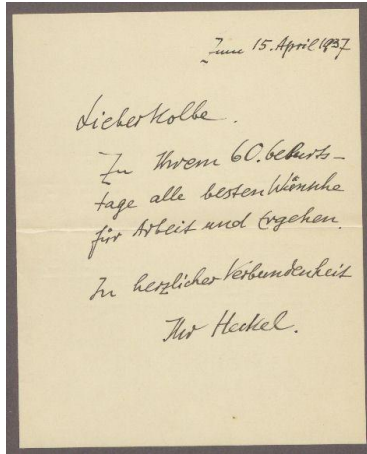 Zum 15. April 1937
Lieber Kolbe.
Zu Ihrem 60. Geburts-
tage alle besten Wünsche
für Arbeit und Ergehen.
In herzlicher Verbundenheit
Ihr Heckel.